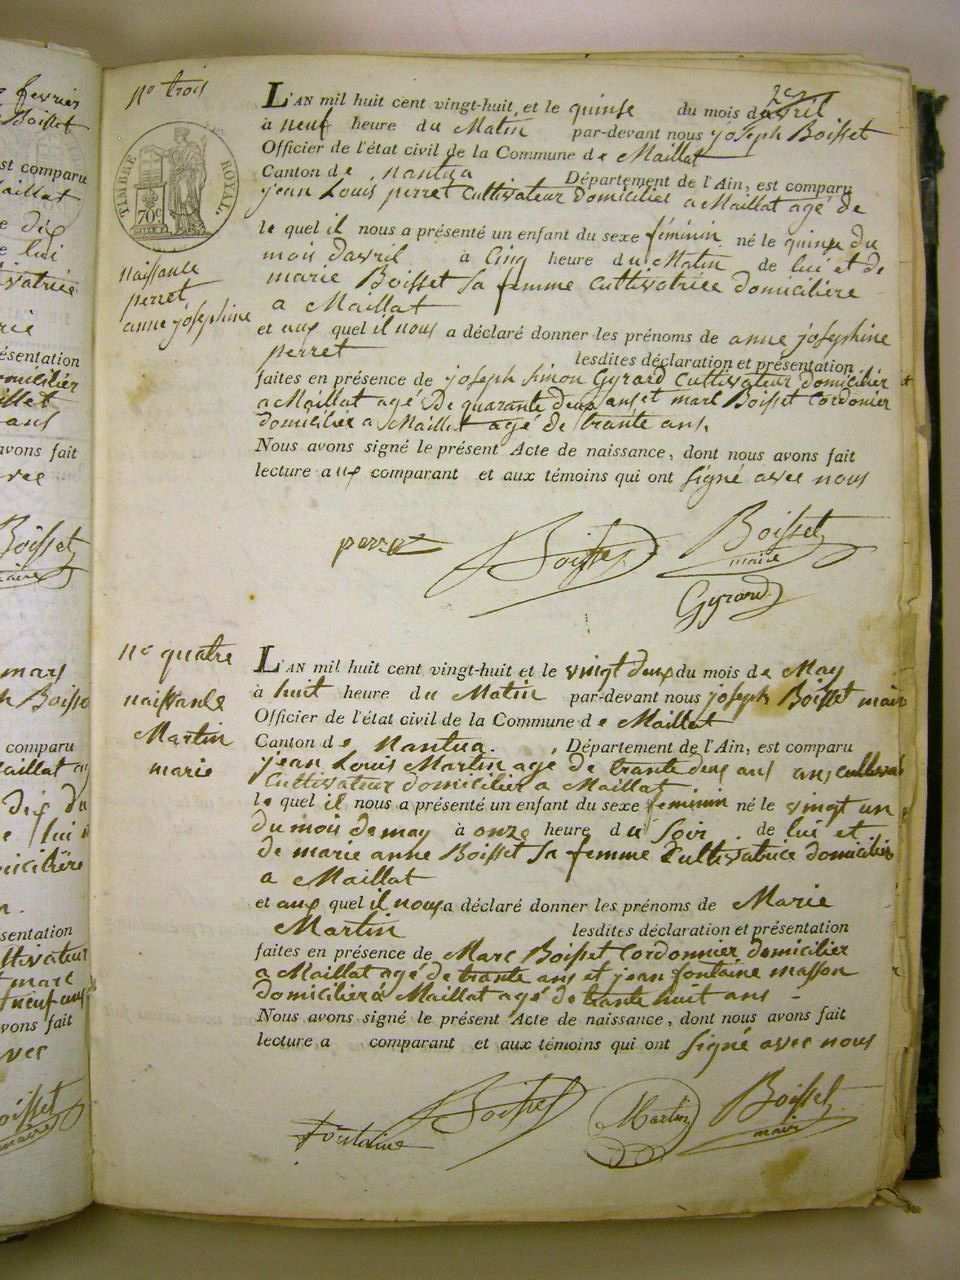 fevrier
Boisset
est comparu
Maillat
de dix
de lui
sentation
domicilier
Maillat
ans
avons fait
avec
Boisset
maire
mars
Boisset
comparu
Maillat
dix du
lui
domicilière
sentation
cultivateur
marc
neuf ans
avons fait
avec
Boisset
maire
no trois
TIMBRE ROYAL.
70c
naissance
perret
anne josephine
2e
L'AN mil huit cent vingt-huit et le quinse du mois d'avril
à neuf heure du Matin par-devant nous joseph Boisset
Officier de l'état civil de la Commune de Maillat
Canton de nantua Département de l'Ain, est comparu
jean Louis perret Cultivateur domicilier a Maillat agé de
le quel il nous a présenté un enfant du sexe féminin né le quinse du
mois davril à Cinq heure du Matin de lui et de
marie Boisset sa femme Cultivatrice domiciliere
a Maillat
et aux quel il nous a déclaré donner les prénoms de anne josephine
perret lesdites déclaration et présentation
faites en présence de joseph simon Gyrard Cultivateur domicilier
a Maillat agé De quarante deux ans et marc Boisset Cordonier
domicilie a Maillat agé de trante ans.
Nous avons signé le présent Acte de naissance, dont nous avons fait
lecture aux comparant et aux témoins qui ont signé avec nous
perret
Boisset
Boisset
maire
Gyrard
no quatre
naissance
Martin
marie
L'AN mil huit cent vingt-huit et le vingt deux du mois de May
à huit heure du Matin par-devant nous joseph Boisset mair
Officier de l'état civil de la Commune de Maillat
Canton de Nantua. Département de l'Ain, est comparu
jean Louis Martin age de trante deux ans ans cultivat
Cultivateur domicilier a Maillat
le quel il nous a présenté un enfant du sexe feminin né le vingt un
du mois de may à onze heure du Soir de lui et
de marie anne Boisset sa femme Cultivatrice domicilier
a Maillat
et aux quel il nous a déclaré donner les prénoms de Marie
Martin lesdites déclaration et présentation
faites en présence de Marc Boisset Cordonnier domicilier
a Maillat agé de trante ans et jean fontaine masson
domicilier à Maillat agé de trante huit ans
Nous avons signé le présent Acte de naissance, dont nous avons fait
lecture a comparant et aux témoins qui ont signé avec nous
fontaine
Boisset
Martin
Boisset
mair